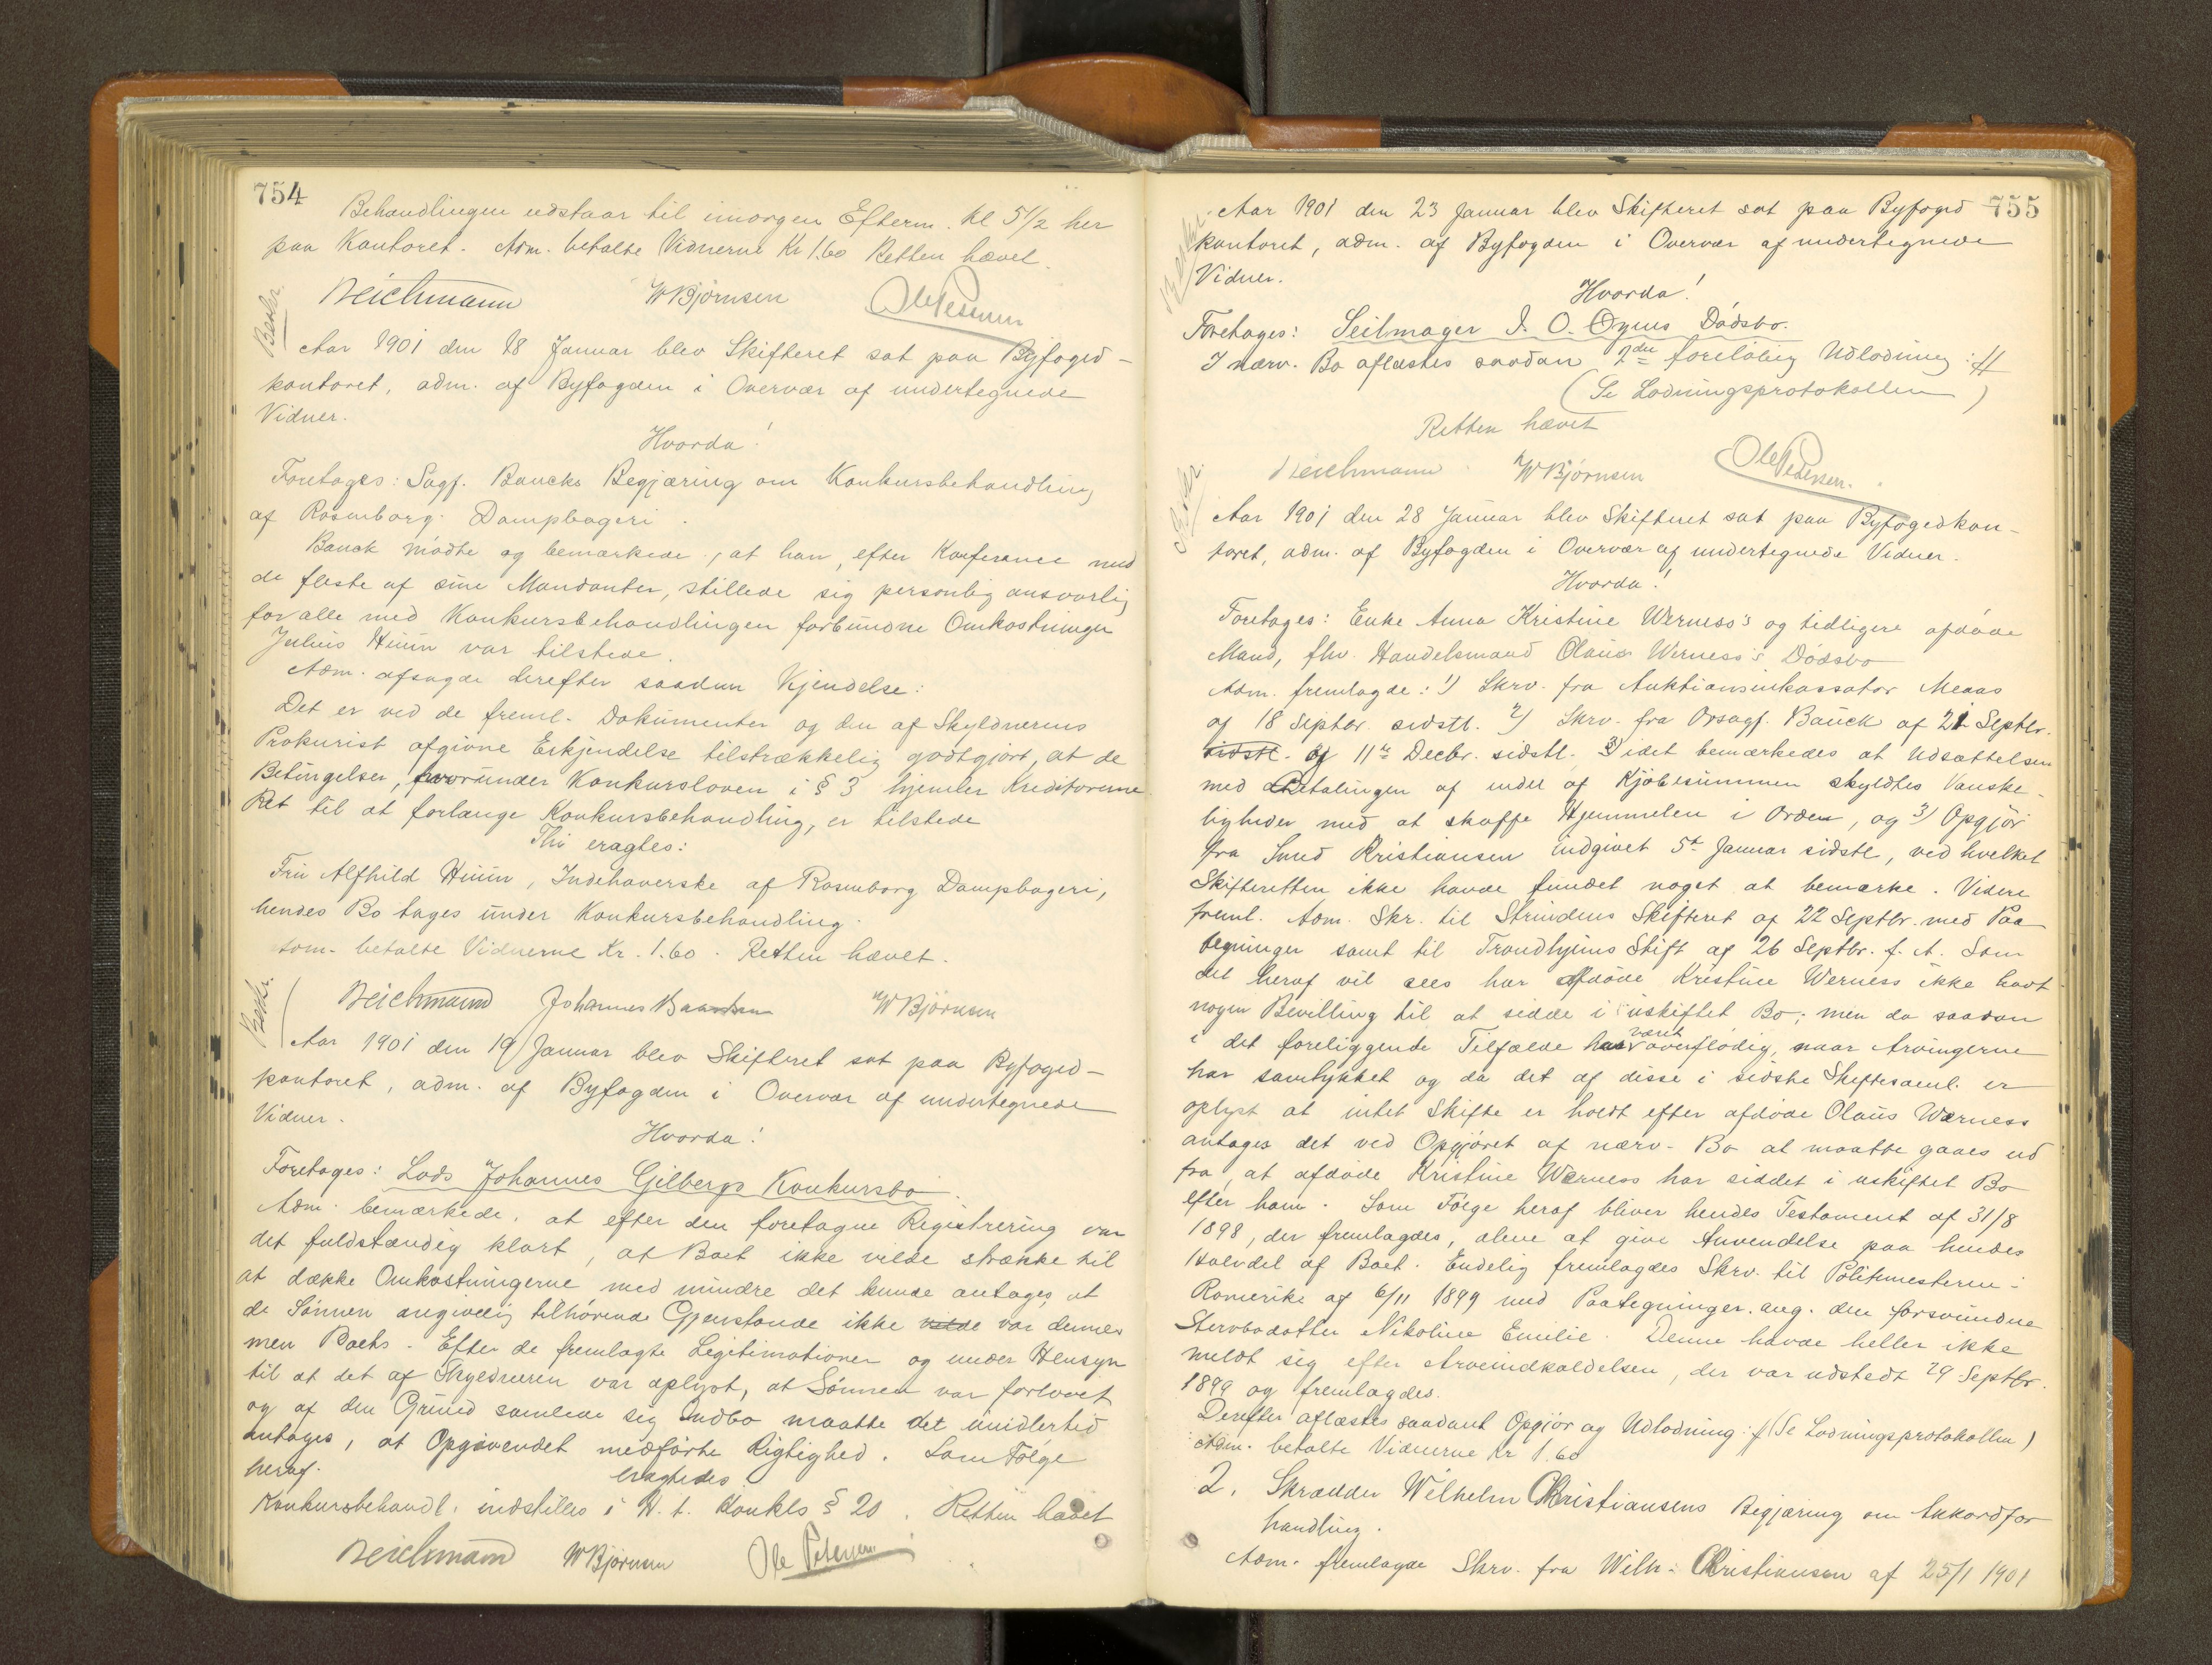 754
Behandlingen udstaar til imorgen Efterm. kl 5 1/2 her
paa Kontoret. Adm. betalte Vidnerne Kr 1.60 Retten hævet.
Beichmann WBjørnsen Ole Pedersen
Beskr.
Aar 1901 den 18 Januar blev Skifteret sat paa Byfoged-
kontoret, adm. af Byfogden i Overvær af undertegnede
Vidner.
Hvorda!
Foretages: Sagf. Baucks Begjæring om Konkursbehandling
af Rosenborg Dampbageri.
Bauck mødte og bemærkede, at han, efter Konferance med
de fleste af sine Mandanter, stillede sig personlig ansvarlig
for alle med Konkursbehandlingen forbundne Omkostninger
Julius Huun var tilstede.
Adm. afsagde derefter saadan Kjendelse:
Det er ved de freml. Dokumenter og den af Skyldnerens
Prokurist afgivne Erkjendelse tilstrækkelig godtgjort, at de
Betingelser, hvorunder Konkursloven i § 3 hjemler Kreditorerne
Ret til at forlange Konkursbehandling, er tilstede
Thi eragtes:
Fru Alfhild Huun, Indehaverske af Rosenborg Dampbageri,
hendes Bo tages under Konkursbehandling.
Adm. betalte Vidnerne Kr. 1.60. Retten hævet.
Beskr.
Beichmann Johannes WBjørnsen
Aar 1901 den 19 Januar blev Skifteret sat paa Byfoged-
kontoret, adm. af Byfogden i Overvær af undertegnede
Vidner.
Hvorda!
Foretages: Lods Johannes Gilbergs Konkursbo.
Adm. bemærkede, at efter den foretagne Registrering var
det fuldstændig klart, at Boet ikke vilde strække til
at dække Omkostningerne med mindre det kunde antages, at
de Sønnen angivelig tilhørende Gjenstande ikke var dennes
men Boets. Efter de fremlagte Legitimationer og under Hensyn
til at det af Skyldneren var oplyst, at Sønnen var forlovet
og af den Grund samlede sig Indbo maatte det imidlertid
antages, at Opgivendet medførte Rigtighed. Som Følge
heraf eragtedes
Konkursbehandl. indstilles i H. t. Konkls § 20. Retten hævet
Beichmann WBjørnsen Ole Pedersen
755
Aar 1901 den 23 Januar blev Skifteret sat paa Byfoged
kontoret, adm. af Byfogden i Overvær af undertegnede
Vidner.
Hvorda!
Foretages: Seilmager I. O. Øyens Dødsbo.
I nærv. Bo aflæstes saadan 2den foreløbig Udlodning:
(Se Lodningsprotokollen)
Retten hævet
Beichmann WBjørnsen Ole Pedersen.
Beskr.
Aar 1901 den 28 Januar blev Skifteret sat paa Byfogedkon-
toret, adm. af Byfogden i Overvær af undertegnede Vidner.
Hvorda!
Foretages: Enke Anna Kristine Werness's og tidligere afdøde
Mand, fhv. Handelsmand Olaus Werness's Dødsbo
Adm. fremlagde: 1) Skrv. fra Auktionsinkassator Meaas
af 18 Septbr. sidstl. 2) Skrv. fra Orsagf. Bauck af 21 Septbr.
sidstl. og 11te Decbr. sidstl. 3) idet bemærkedes at Udsættelsen
med Betalingen af endel af Kjøbesummen skyldtes Vanske-
ligheder med at skaffe Hjemmelen i Orden, og 3) Opgjør
fra Smed Kristiansen indgivet 5te Januar sidstl, ved hvelket
Skifteretten ikke havde fundet noget at bemærke. Videre
freml. Adm. Skr. til Strindens Skifteret af 22 Septbr. med Paa
tegninger samt til Trondhjems Stift af 26 Septbr. f. A. Som
det heraf vil sees har afdøde Kristine Werness ikke havt
nogen Bevilling til at sidde i uskiftet Bo; men da saadan
i det foreliggende Tilfælde har været overflødig, naar Arvingerne
har samtykket og da det af disse i sidste Skiftesaml. er
oplyst at intet Skifte er holdt efter afdøde Olaus Werness
antages det ved Opgjøret af nærv. Bo at maatte gaaes ud
fra, at afdøde Kristine Werness har siddet i uskiftet Bo
efter ham. Som Følge heraf bliver hendes Testament af 31/8
1898, der fremlagdes, alene at give Anvendelse paa hendes
Halvdel af Boet. Endelig fremlagdes Skrv. til Politimesteren i
Romerike af 6/11 1899 med Paategninger ang. den forsvundne
Stervbodatter Nikoline Emilie. Denne havde heller ikke
meldt sig efter Arveindkaldelsen, der var udstedt 29 Septbr.
1899 og fremlagdes.
Derefter aflæstes saadant Opgjør og Udlodning: (Se Lodningsprotokollen)
Adm. betalte Vidnerne Kr 1.60
2. Skrædder Wilhelm Christiansens Begjæring om Akkordfor
handling.
Adm. fremlagde Skrv. fra Wilh. Christiansen af 25/1 1901